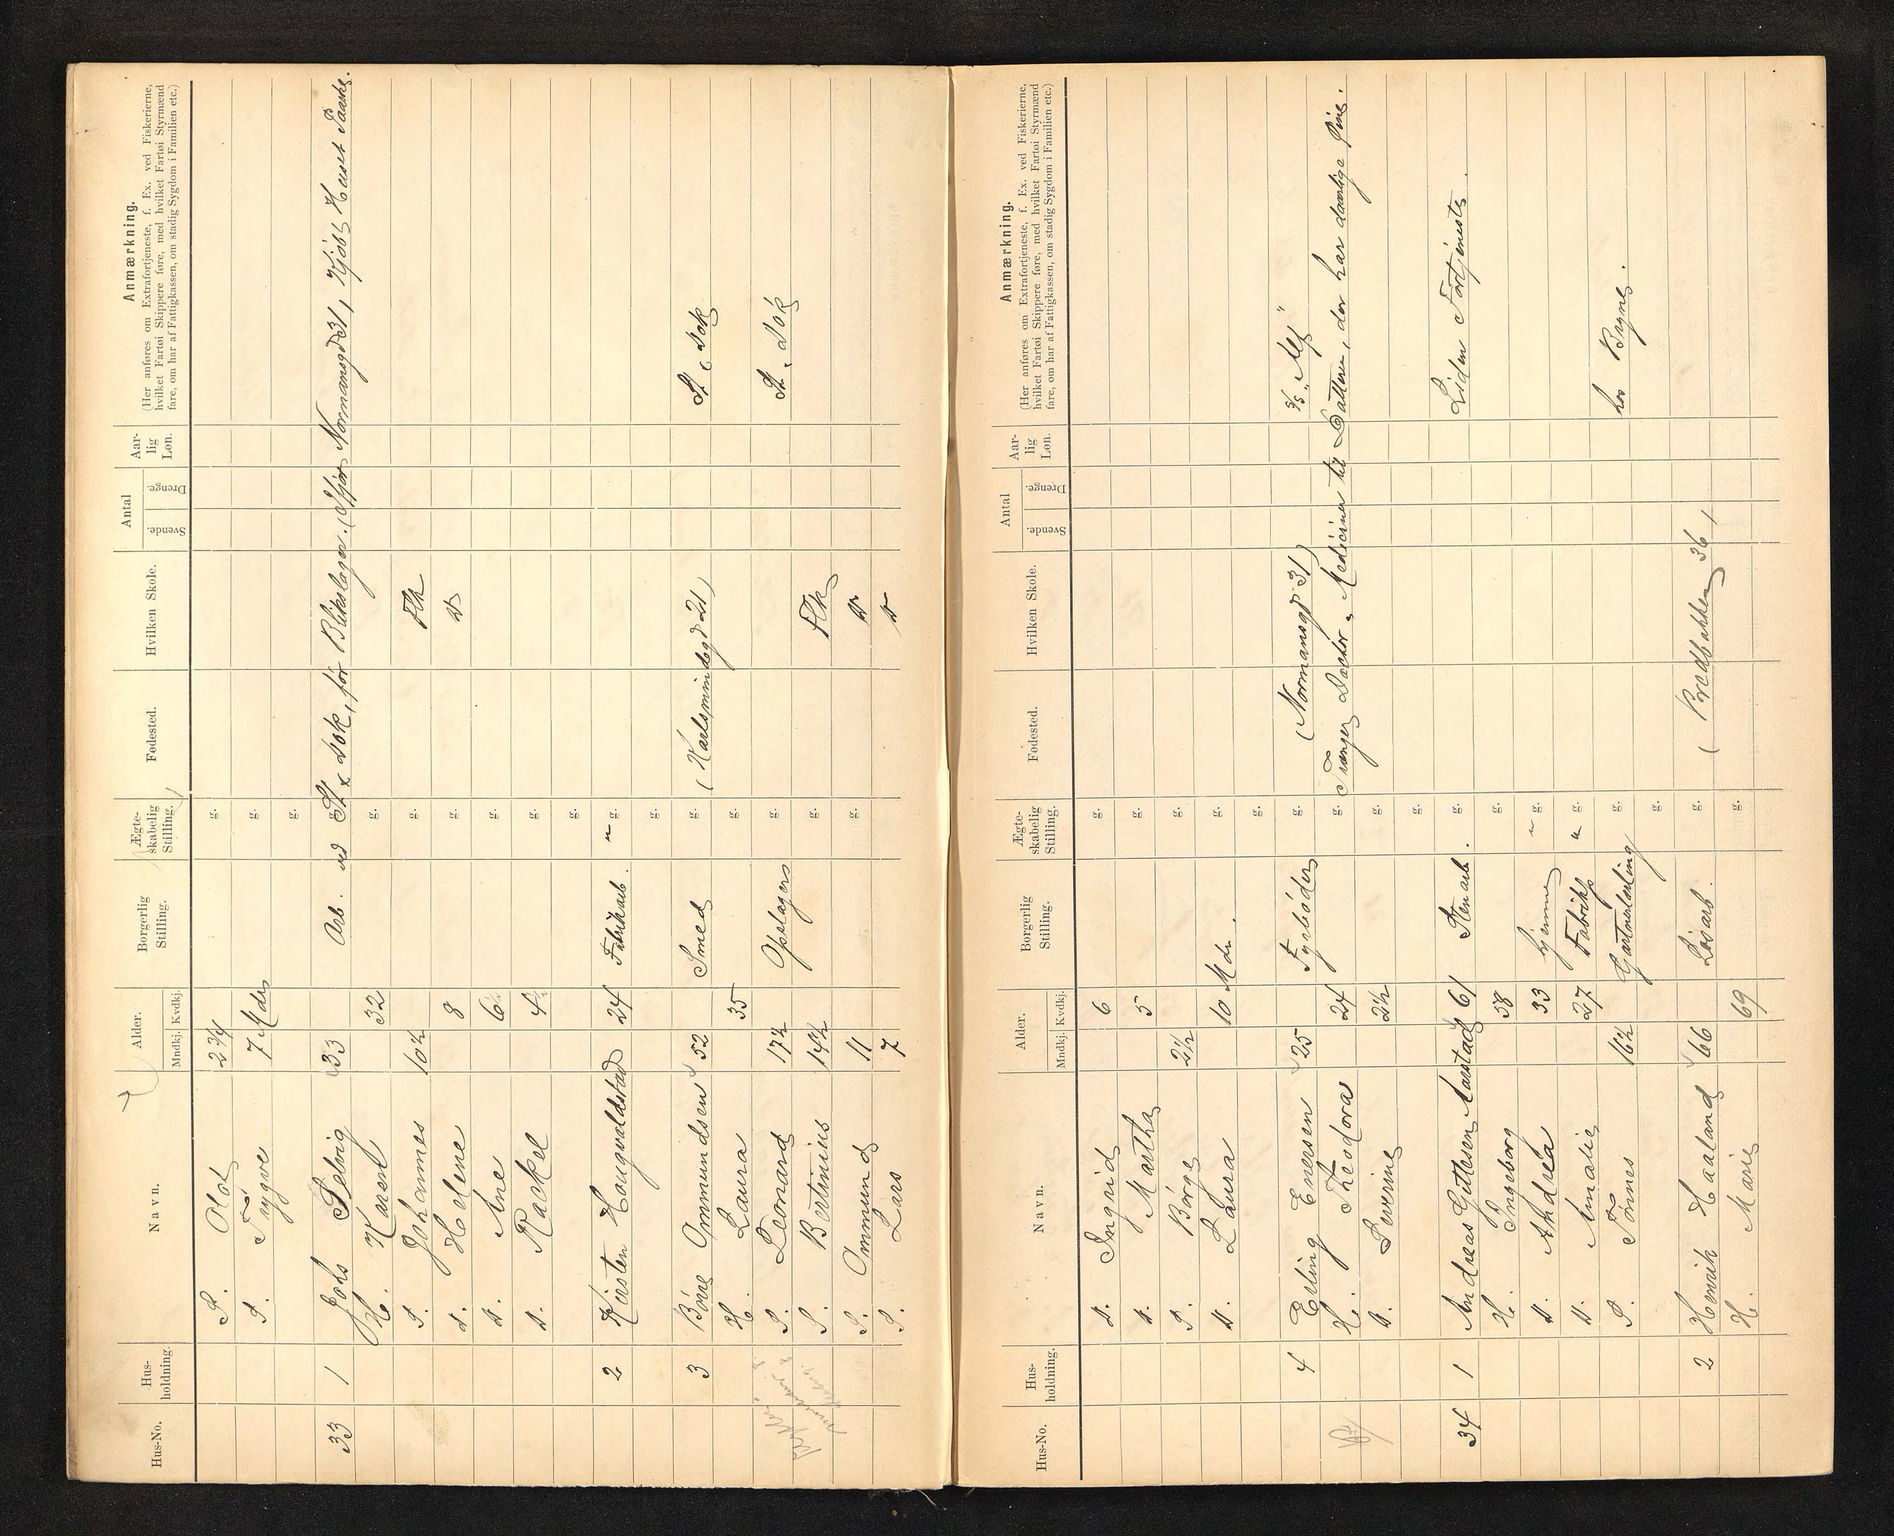 Hus-No. Hus-holdning. Navn. Alder. Mndkj. Kvdkj. Borgerlig Stilling. Ægte-skabelig Stilling. Fødested. Hvilken Skole. Antal Svende. Drenge. Aar-lig Løn. Anmærkning.
(Her anføres om Extrafortjeneste, f. Ex. ved Fiskerierne,
hvilket Fartøi Skippere føre, med hvilket Fartøi Styrmænd
fare, om har af Fattigkassen, om stadig Sygdom i Familien etc.)
S. Olaf 2 3/4 g.
S. Trygve 7 Mdr g.
g.
33 1 Johs Selvig 33 Arb. ved St & Dok, før Blikslager. (Ifjor Normansgd 31, Kjøbt Huset
H. Karen 32 g.
S. Johannes 10½ g. Flk
D. Helene 8 g. D
D. Ane 6½ g.
D. Rackel 4½ g.
g.
2 Kirsten Hougvaldstad 24 Fabrikarb. u g.
g.
3 Børe Ommundsen 52 Smed g. (Karlsmindegd 21) St & Dok
H. Laura 35 g.
S. Leonard 17½ Opslager g. St & Dok
S. Bertinius 14½ g. Flk
S. Ommund 11 g. D
S. Lars 7 D
Hus-No. Hus-holdning. Navn. Alder. Mndkj. Kvdkj. Borgerlig Stilling. Ægte-skabelig Stilling. Fødested. Hvilken Skole. Antal Svende. Drenge. Aar-lig Løn. Anmærkning.
(Her anføres om Extrafortjeneste, f. Ex. ved Fiskerierne,
hvilket Fartøi Skippere føre, med hvilket Fartøi Styrmænd
fare, om har af Fattigkassen, om stadig Sygdom i Familien etc.)
D. Ingrid 6 g.
D. Martha 5 g.
S. Børge 2½ g.
D. Laura 10 Mdr. g.
g.
4 Erling Enersen 25 Fyrbøder g. (Normansgd 31) S/S
H. Theodora 24 g. Trænger Doctor & Medicin til Datteren, der har daarlige Øine.
D. Severine 2½ g.
g.
34 1 Andreas Gitlesen Aarstad 61 Stenarb. g. Liden Fortjeneste.
H. Ingeborg 58 g.
D. Andrea 33 hjemme u g.
D. Amalie 27 Fabrik u g.
S. Tønnes 16½ Gartnerlærling g. hos Bryne.
g.
2 Henrik Haaland 66 Løsarb. g. (Bredbakken 36)
H. Marie 69 g.